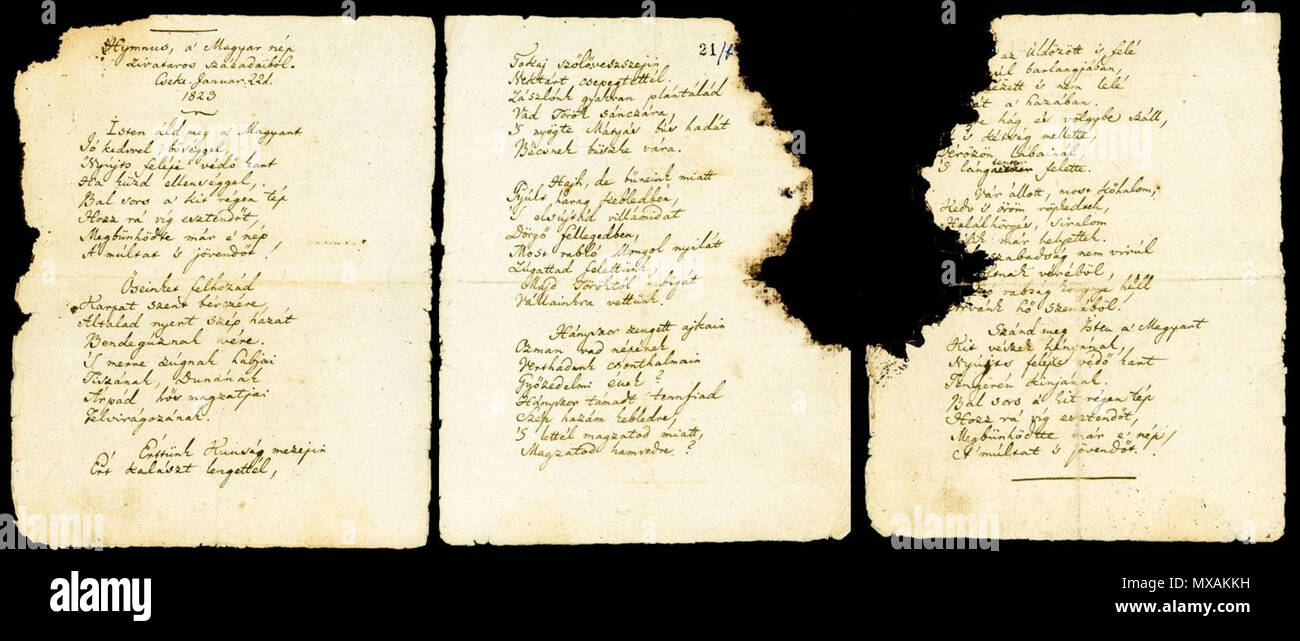 Hymnus, a' Magyar nép
zivataros századaiból.
Cseke. Januar. 22d.
1823
Isten áld meg a' Magyart
Jó kedvvel, bőséggel,
Nyújts feléje védő kart
Ha küzd ellenséggel,
Bal sors a' kit régen tép
Hozz rá víg esztendőt,
Megbünhödte már e' nép
A' múltat 's jövendőt!
Őseinket felhozád
Karpat szent bérczére,
Általad nyert szép hazát
Bendegúznak vére.
'S merre zúgnak habjai
Tiszának, Dunának
Árpád hős magzatjai
Felvirágozának.
Értünk Kunság mezejin
Ért kalászt lengettél,
21/
Tokaj szőlővesszejin
Nektárt csepegtettél.
Zászlónk gyakran plántálád
Vad Török sánczára,
'S nyögte Mátyás bús hadát
Bécsnek büszke vára.
Hajh, de bűneink miatt
Gyúlt harag kebledben,
'S elsújtád villámidat
Dörgő fellegedben,
Most rabló Mongol nyilát
Zúgattad felettünk,
Majd Töröktől rabigát
Vállainkra vettünk.
Hányszor zengett ajkain
Ozman vad népének
Vert hadunk csonthalmain
Győzedelmi ének?
Hányszor támadt tennfiad
Szép hazám kebledre,
'S lettél magzatod miatt,
Magzatod hamvedre?
az üldözött 's felé
barlangjában,
nézett 's nem lelé
a' hazában.
hág és völgybe száll,
's kétség mellette,
Vérözön lábainál,
'S lángtenger felette.
Vár állott, most kőhalom,
Kedv 's öröm röpkedtek,
Halálhörgés, siralom
már helyettek.
szabadság nem virúl
véréből,
rabság könnye húll
Árvánk hő szeméből.
Szánd meg Isten a' Magyart
Kit vészek hányának,
Nyújts feléje védő kart
Tengerén kínjának.
Bal sors a' kit régen tép
Hozz rá víg esztendőt,
Megbünhödte már e' nép
A' múltat 's jövendőt!
alamy
Image ID: MXAKKH
www.alamy.com